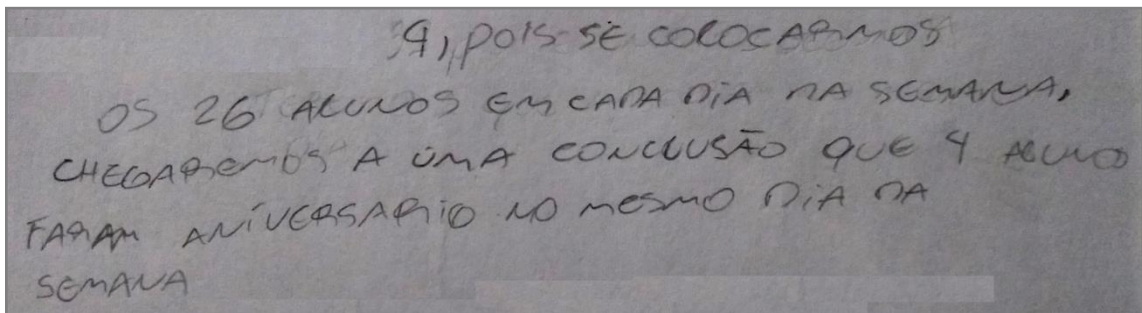 4, POIS SE COLOCARMOS
OS 26 ALUNOS EM CADA DIA DA SEMANA,
CHEGAREMOS A UMA CONCLUSÃO QUE 4 ALUNO
FARAM ANIVERSARIO NO MESMO DIA DA
SEMANA